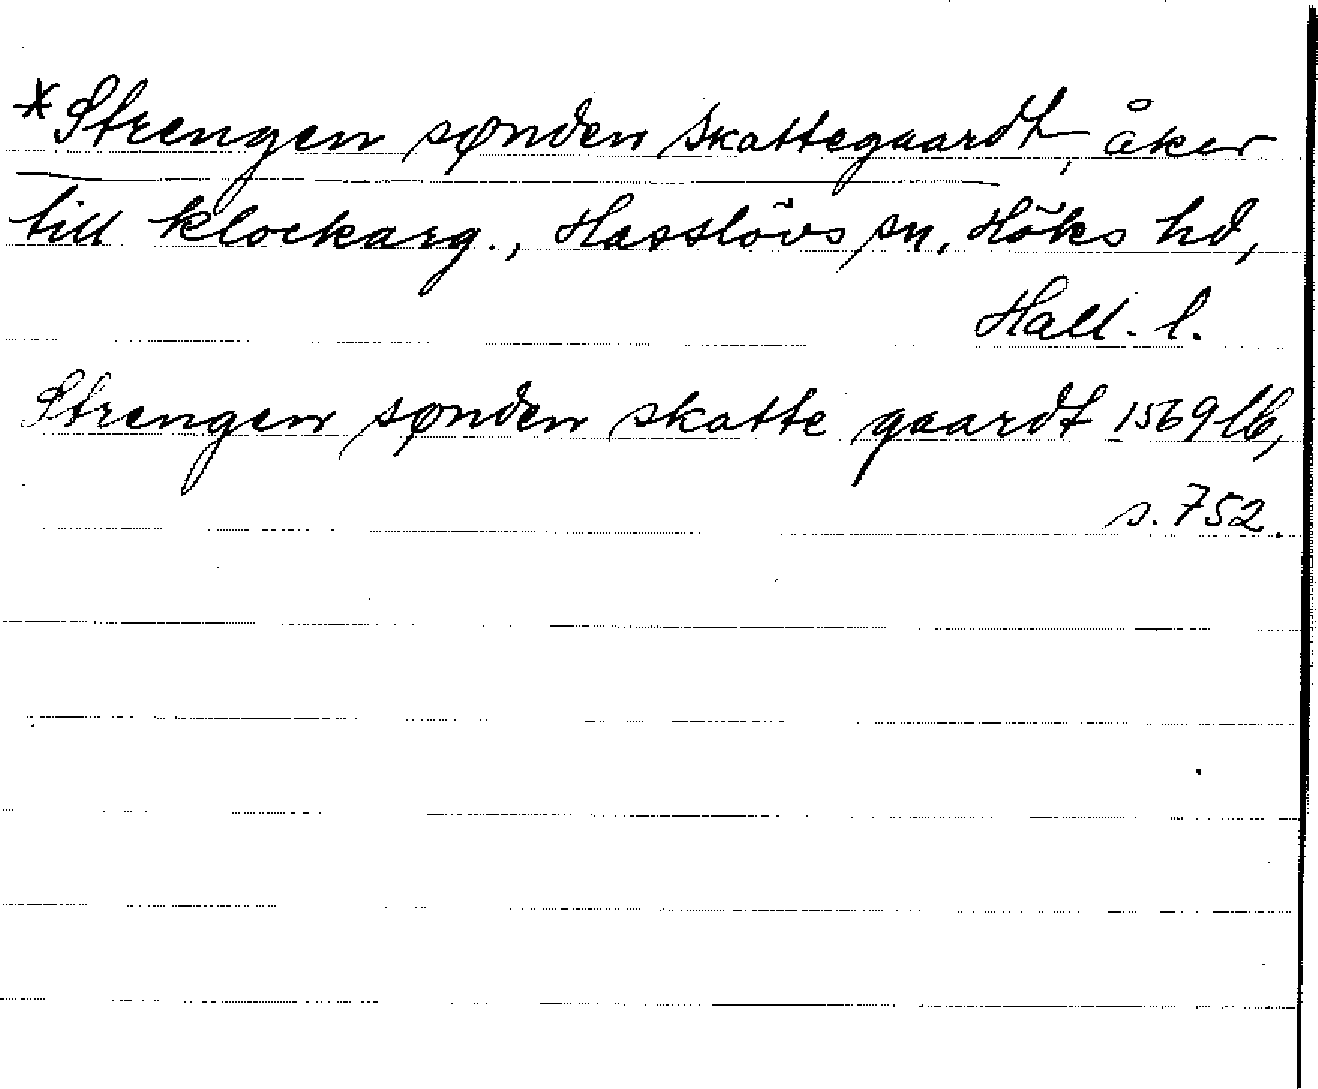 *Strengen sønden skattegaardt, åker
till klockarg., Hasslövs sn, Höks hd,
Hall. l.
Strengen sønden skatte gaardt 1569 lb,
s. 752.